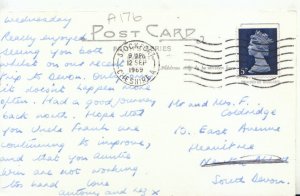 A176
Wednesday
POST CARD
Really enjoyed
seeing you both
whilst on our recent
trip to Devon.
it doesn't happen more
often. Had a good journey
back north. Hope that
you Uncle Frank are
continuing to improve,
and that you Auntie
Win are not working
too hard. Love
Antony and
STOCKPORT
PM
12 SEP
1969
CHESHIRE
Mr and Mrs. F.
Coldridge
15. East Avenue
Heavitree
South Devon.